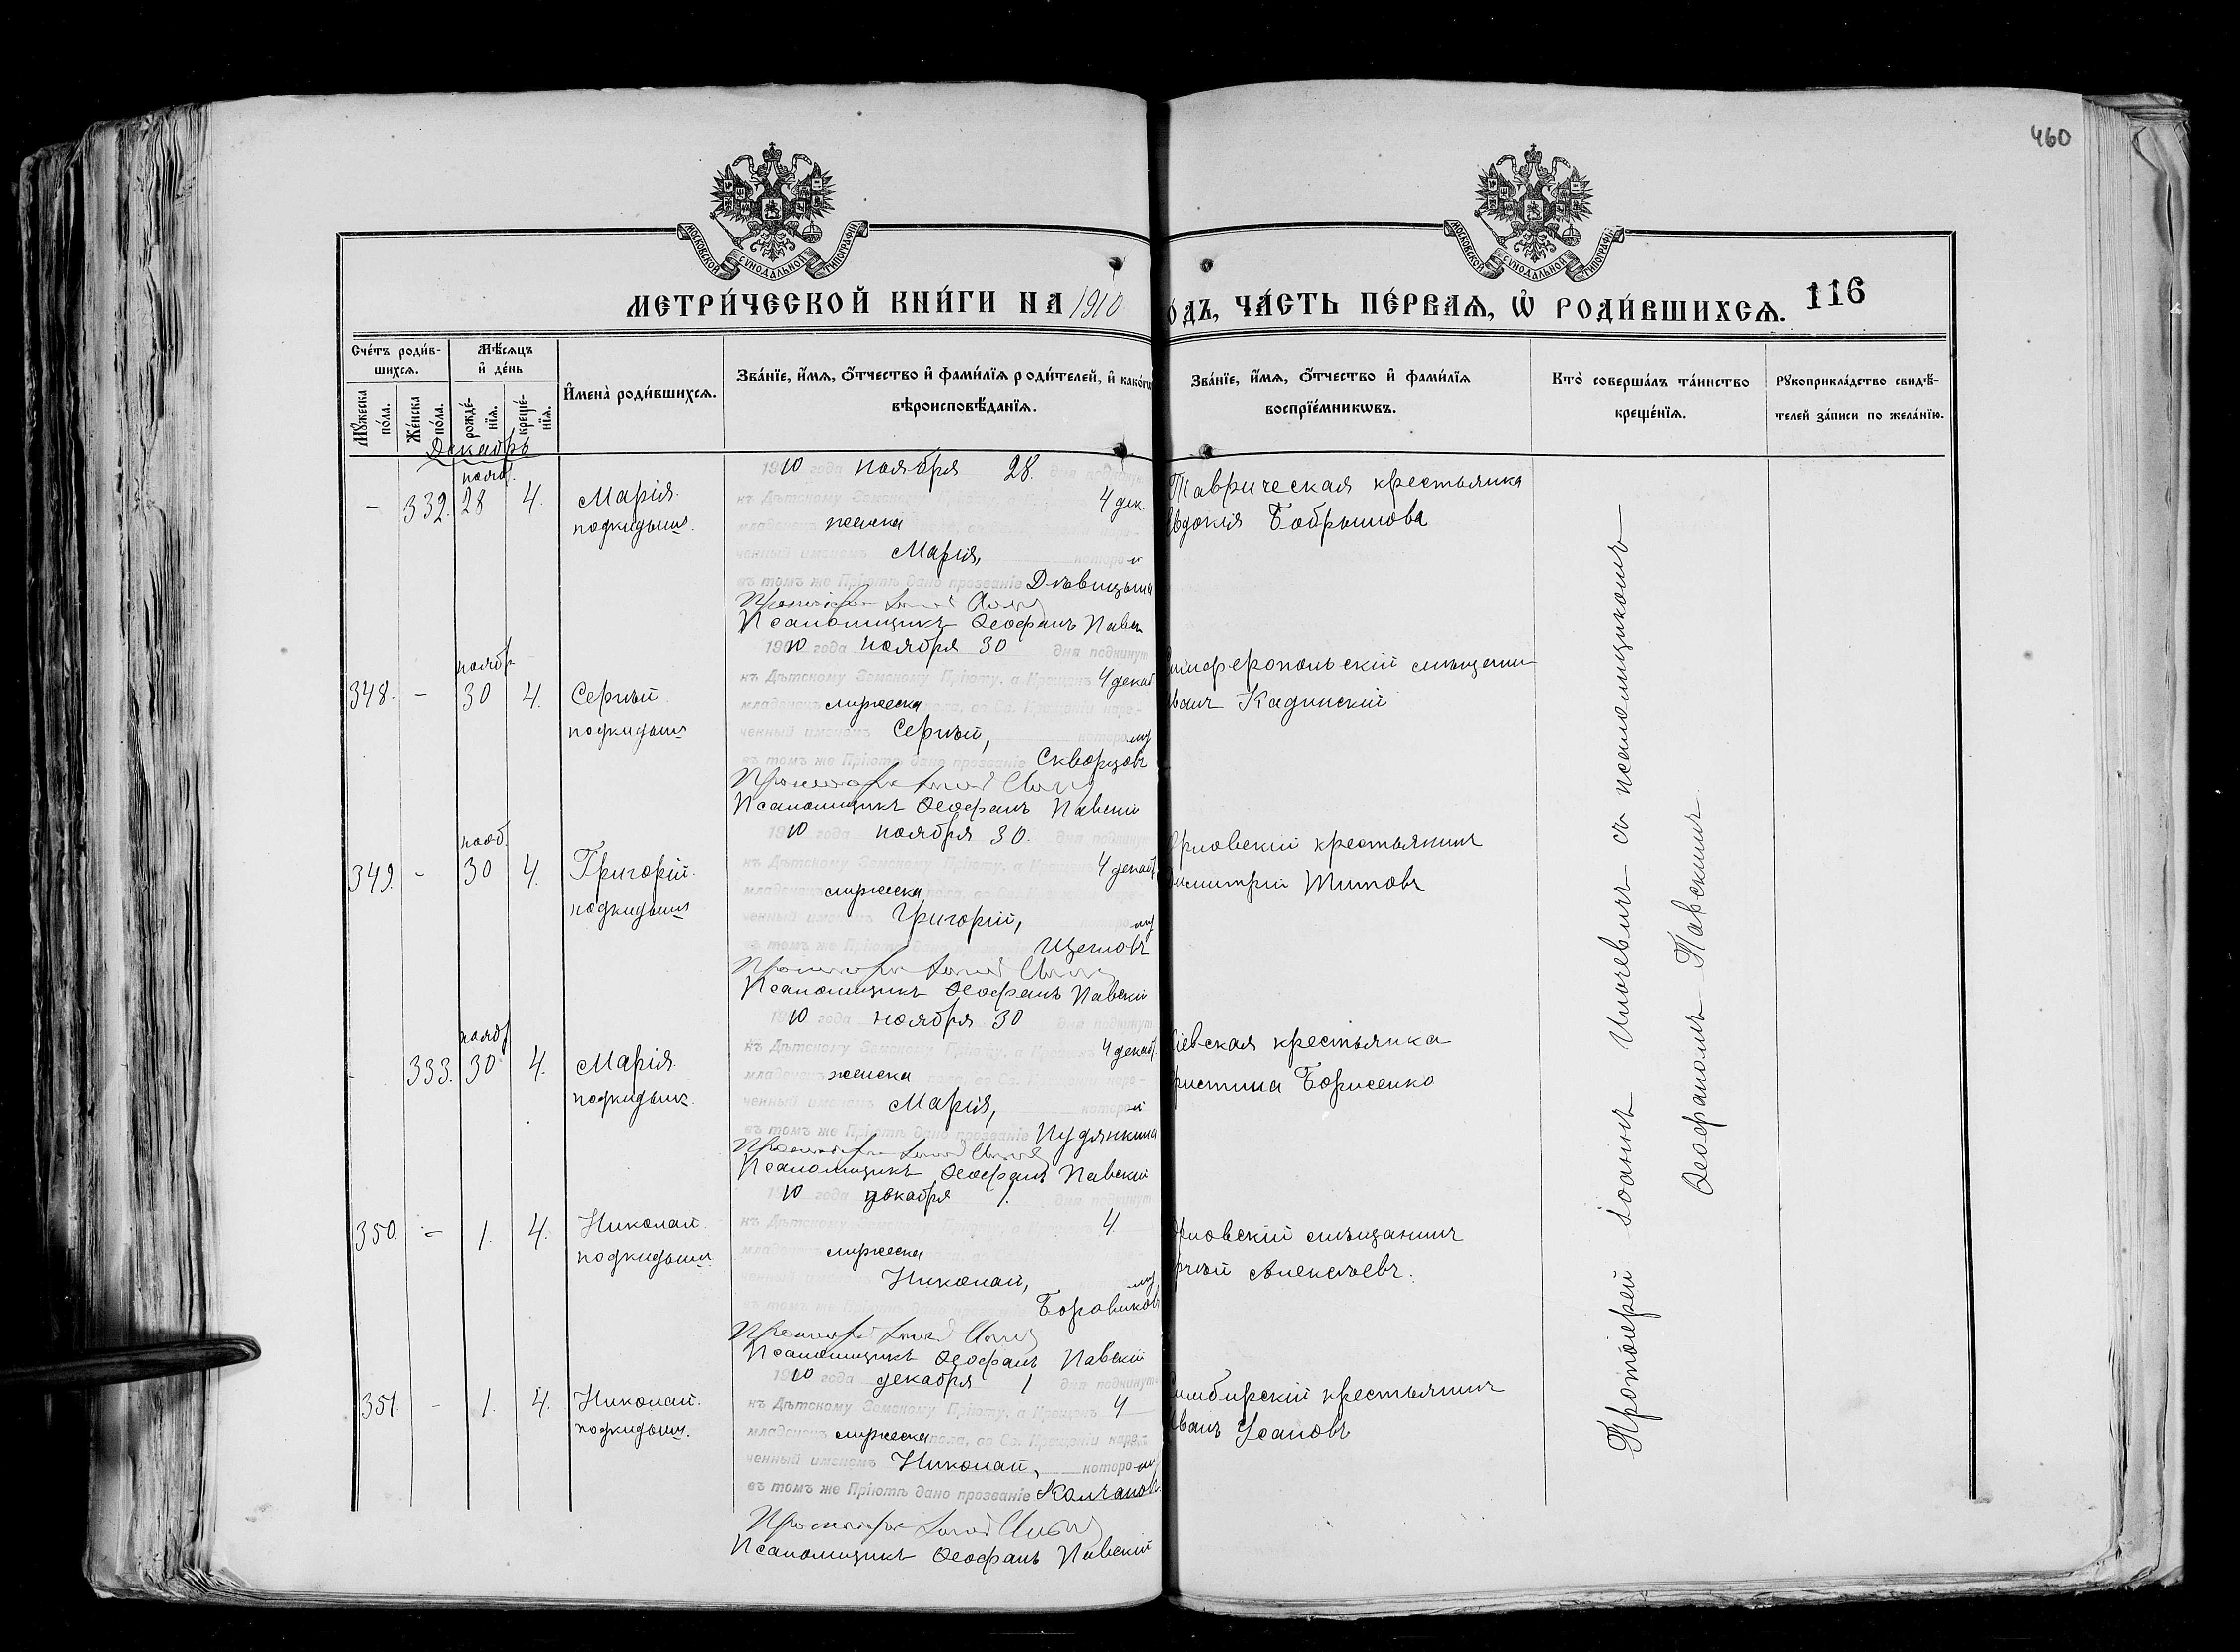 460
МОСКОВСКОЙ СѴНОДАЛЬНОЙ ТИПОГРАФІИ
МОСКОВСКОЙ СѴНОДАЛЬНОЙ ТИПОГРАФІИ
МЕТРИ́ЧЕСКОЙ КНИ́ГИ НА 1910
ОДЪ, ЧА́СТЬ ПЕ́РВАѦ, Ѡ҆ РОДИ́ВШИХСѦ. 116
Сче́тъ роди́в-
шихсѧ.
Мꙋ́жеска по́ла.
Же́нска по́ла.
Мѣ́сѧцъ
и҆ де́нь
рожде́-
нїѧ.
креще́-
нїѧ.
И҆мена̀ роди́вшихсѧ.
Зва́нїе, и҆́мѧ, ѻ҆́тчество и҆ фами́лїѧ роди́телей, и҆ како́гѡ
вѣроисповѣ́данїѧ.
Зва́нїе, и҆́мѧ, ѻ҆́тчество и҆ фами́лїѧ
воспрїе́мникѡвъ.
Кто̀ соверша́лъ та́инство
креще́нїѧ.
Рꙋкоприкла́дство свидѣ́-
телей за́писи по жела́нїю.
Декабрь
- 332. нояб. 28 4. Марія.
подкидышъ.
1910 года ноября 28. дня подкинут
къ Дѣтскому Земскому Пріюту, 4 дек.
младенецъ женска
ченный именемъ Марія, которо й
въ томъ же Пріютѣ дано прозваніе Дѣвицына
Псаломщикъ Ѳеофанъ Павск
Таврическая крестьянка
вдокія Бобрышова
348. - ноябр 30 4. Сергѣй
подкидышъ
1910 года ноября 30 дня подкинут
къ Дѣтскому Земскому Пріюту, а Крещенъ 4 декаб
младенецъ мужеска пола, во Св. Крещеніи наре-
ченный именемъ Сергѣй, которо му
въ томъ же Пріютѣ дано прозваніе Скворцовъ
Псаломщикъ Ѳеофанъ Павскій
имферопольскій мѣщанин
ванъ Кадинскій
349. - нояб. 30 4. Григорій.
подкидышъ
1910 года ноября 30. дня подкинут
къ Дѣтскому Земскому Пріюту, а Крещенъ 4 декаб
младенецъ мужеска пола, во Св. Крещеніи наре-
ченный именемъ Григорій, которо му
въ томъ же Пріютѣ дано прозваніе Щегловъ
Псаломщикъ Ѳеофанъ Павскій
рловскій крестьянинъ
имитрій Титовъ
333. нояб 30 4. Марія.
подкидышъ.
1910 года ноября 30 дня подкинут
къ Дѣтскому Земскому Пріюту, а Крещенъ 4 декаб.
младенецъ женска пола, во Св. Крещеніи наре-
ченный именемъ Марія, которо й
въ томъ же Пріютѣ дано прозваніе Пудянкина
Псаломщикъ Ѳеофанъ Павскій
іевская крестьянка
ристина Борисенко
350. - 1. 4. Николай.
подкидышъ.
1910 года декабря 1. дня подкинут
къ Дѣтскому Земскому Пріюту, 4.
младенецъ мужеска
ченный именемъ Николай, му
Боровиковъ
Псаломщикъ Ѳеофанъ Павскій
рловскій мѣщанинъ
ргѣй Алексѣевъ.
351. - 1. 4. Николай.
подкидышъ.
1910 года декабря 1 дня подкинут
къ Дѣтскому Земскому Пріюту, а Крещенъ 4
младенецъ мужеска пола, во Св. Крещеніи наре-
ченный именемъ Николай, которо му
въ томъ же Пріютѣ дано прозваніе Колчанов
Псаломщикъ Ѳеофанъ Павскій
имбирскій крестьянинъ
ванъ Усановъ
Протоіерей Іоаннъ съ псаломщикомъ
Ѳеофаномъ Павскимъ